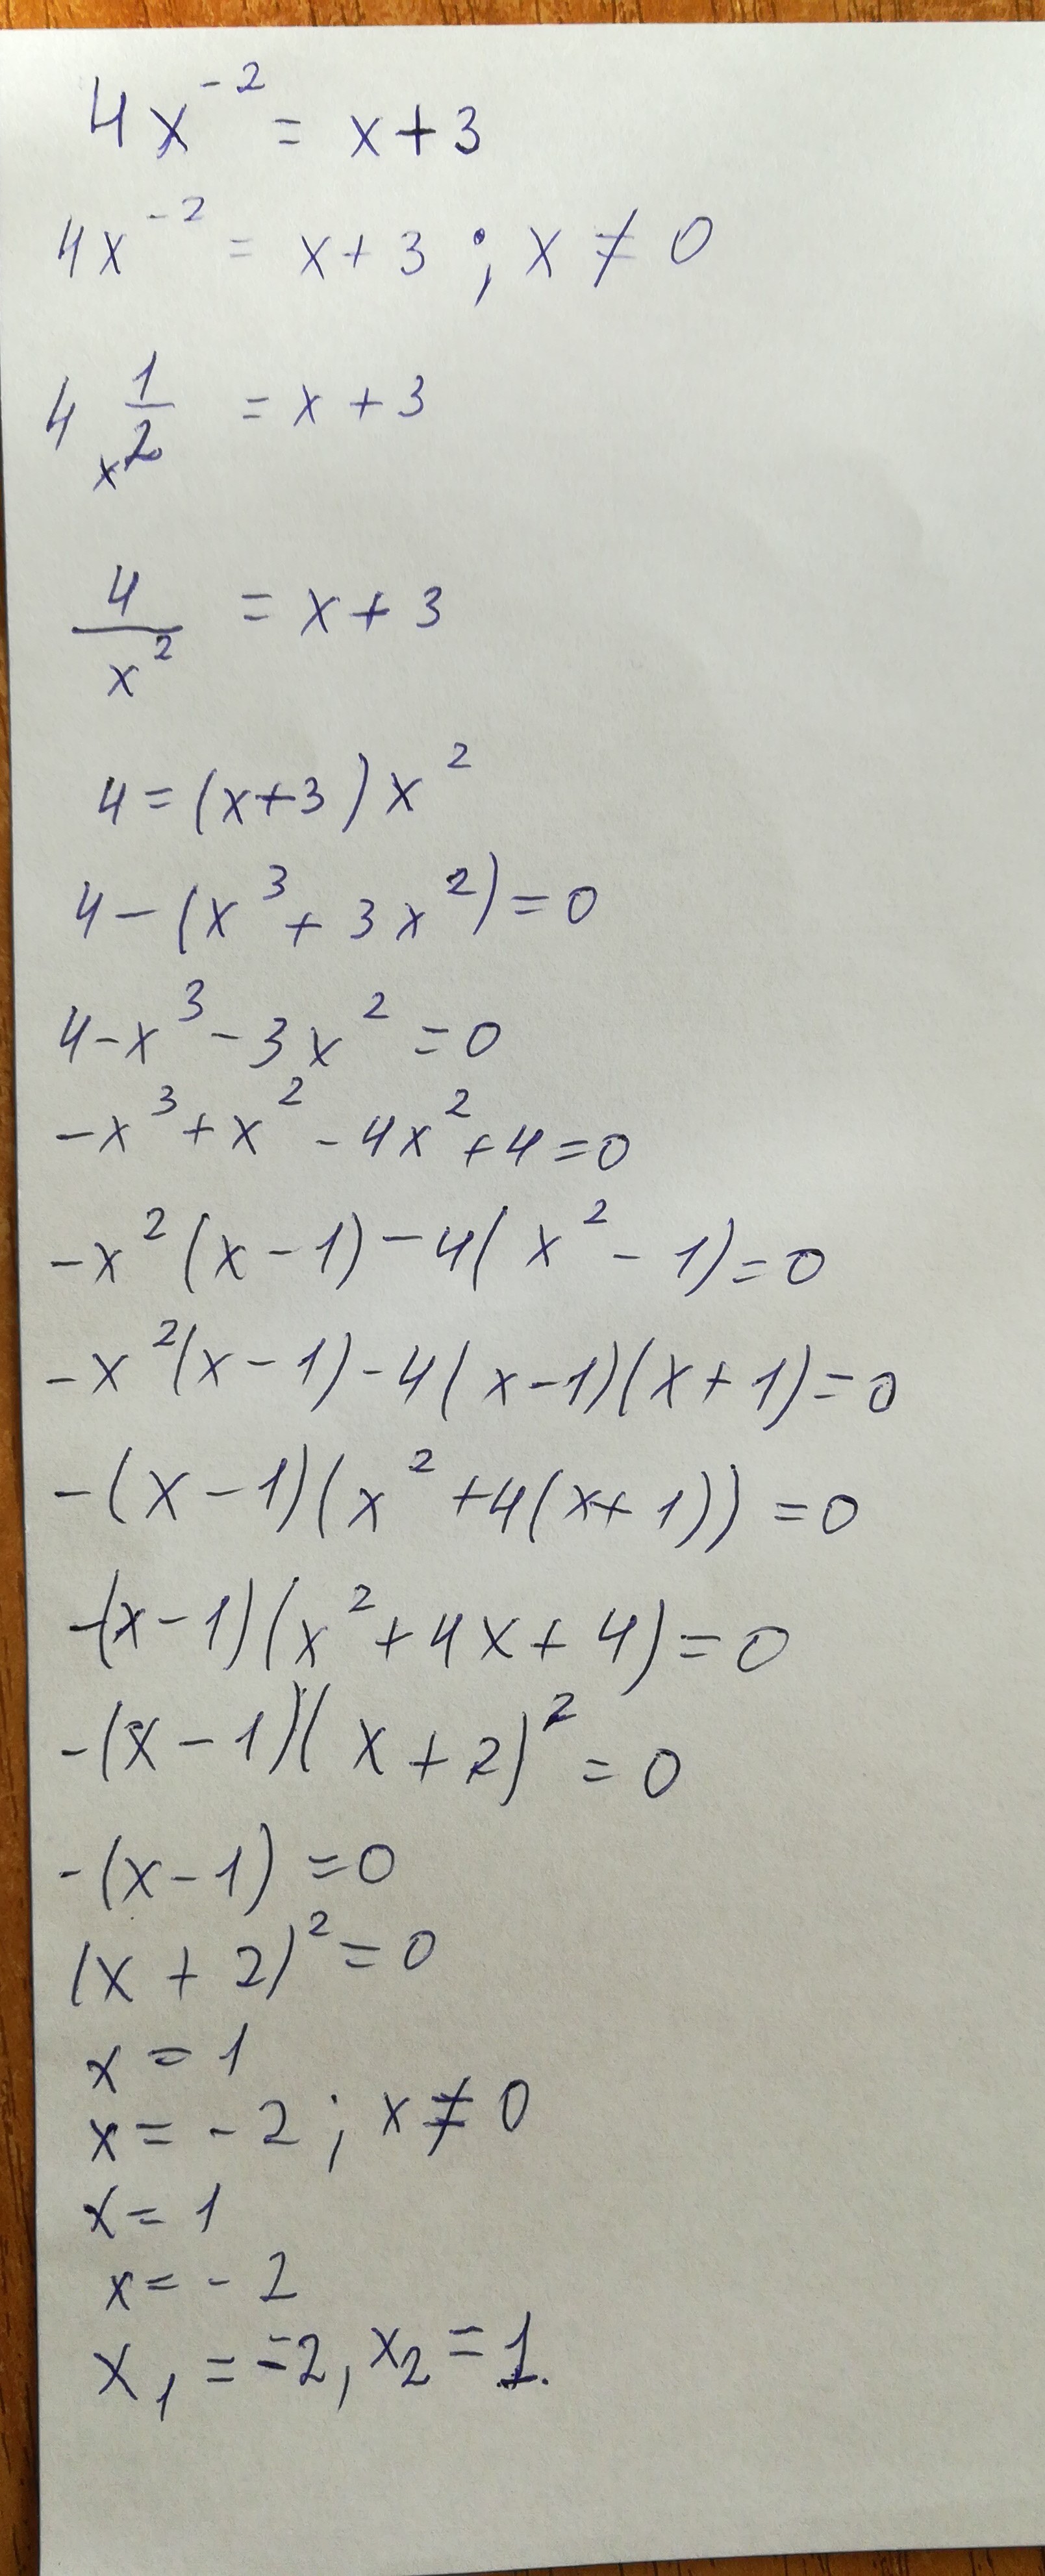 4x⁻² = x+3
4x⁻² = x+3 ; x ≠ 0
4 1/x² = x+3
4/x² = x+3
4=(x+3)x²
4-(x³+3x²)=0
4-x³-3x²=0
-x³+x²-4x²+4=0
-x²(x-1)-4(x²-1)=0
-x²(x-1)-4(x-1)(x+1)=0
-(x-1)(x²+4(x+1))=0
-(x-1)(x²+4x+4)=0
-(x-1)(x+2)²=0
-(x-1)=0
(x+2)²=0
x=1
x=-2; x≠0
x=1
x=-2
x₁=-2, x₂=1.